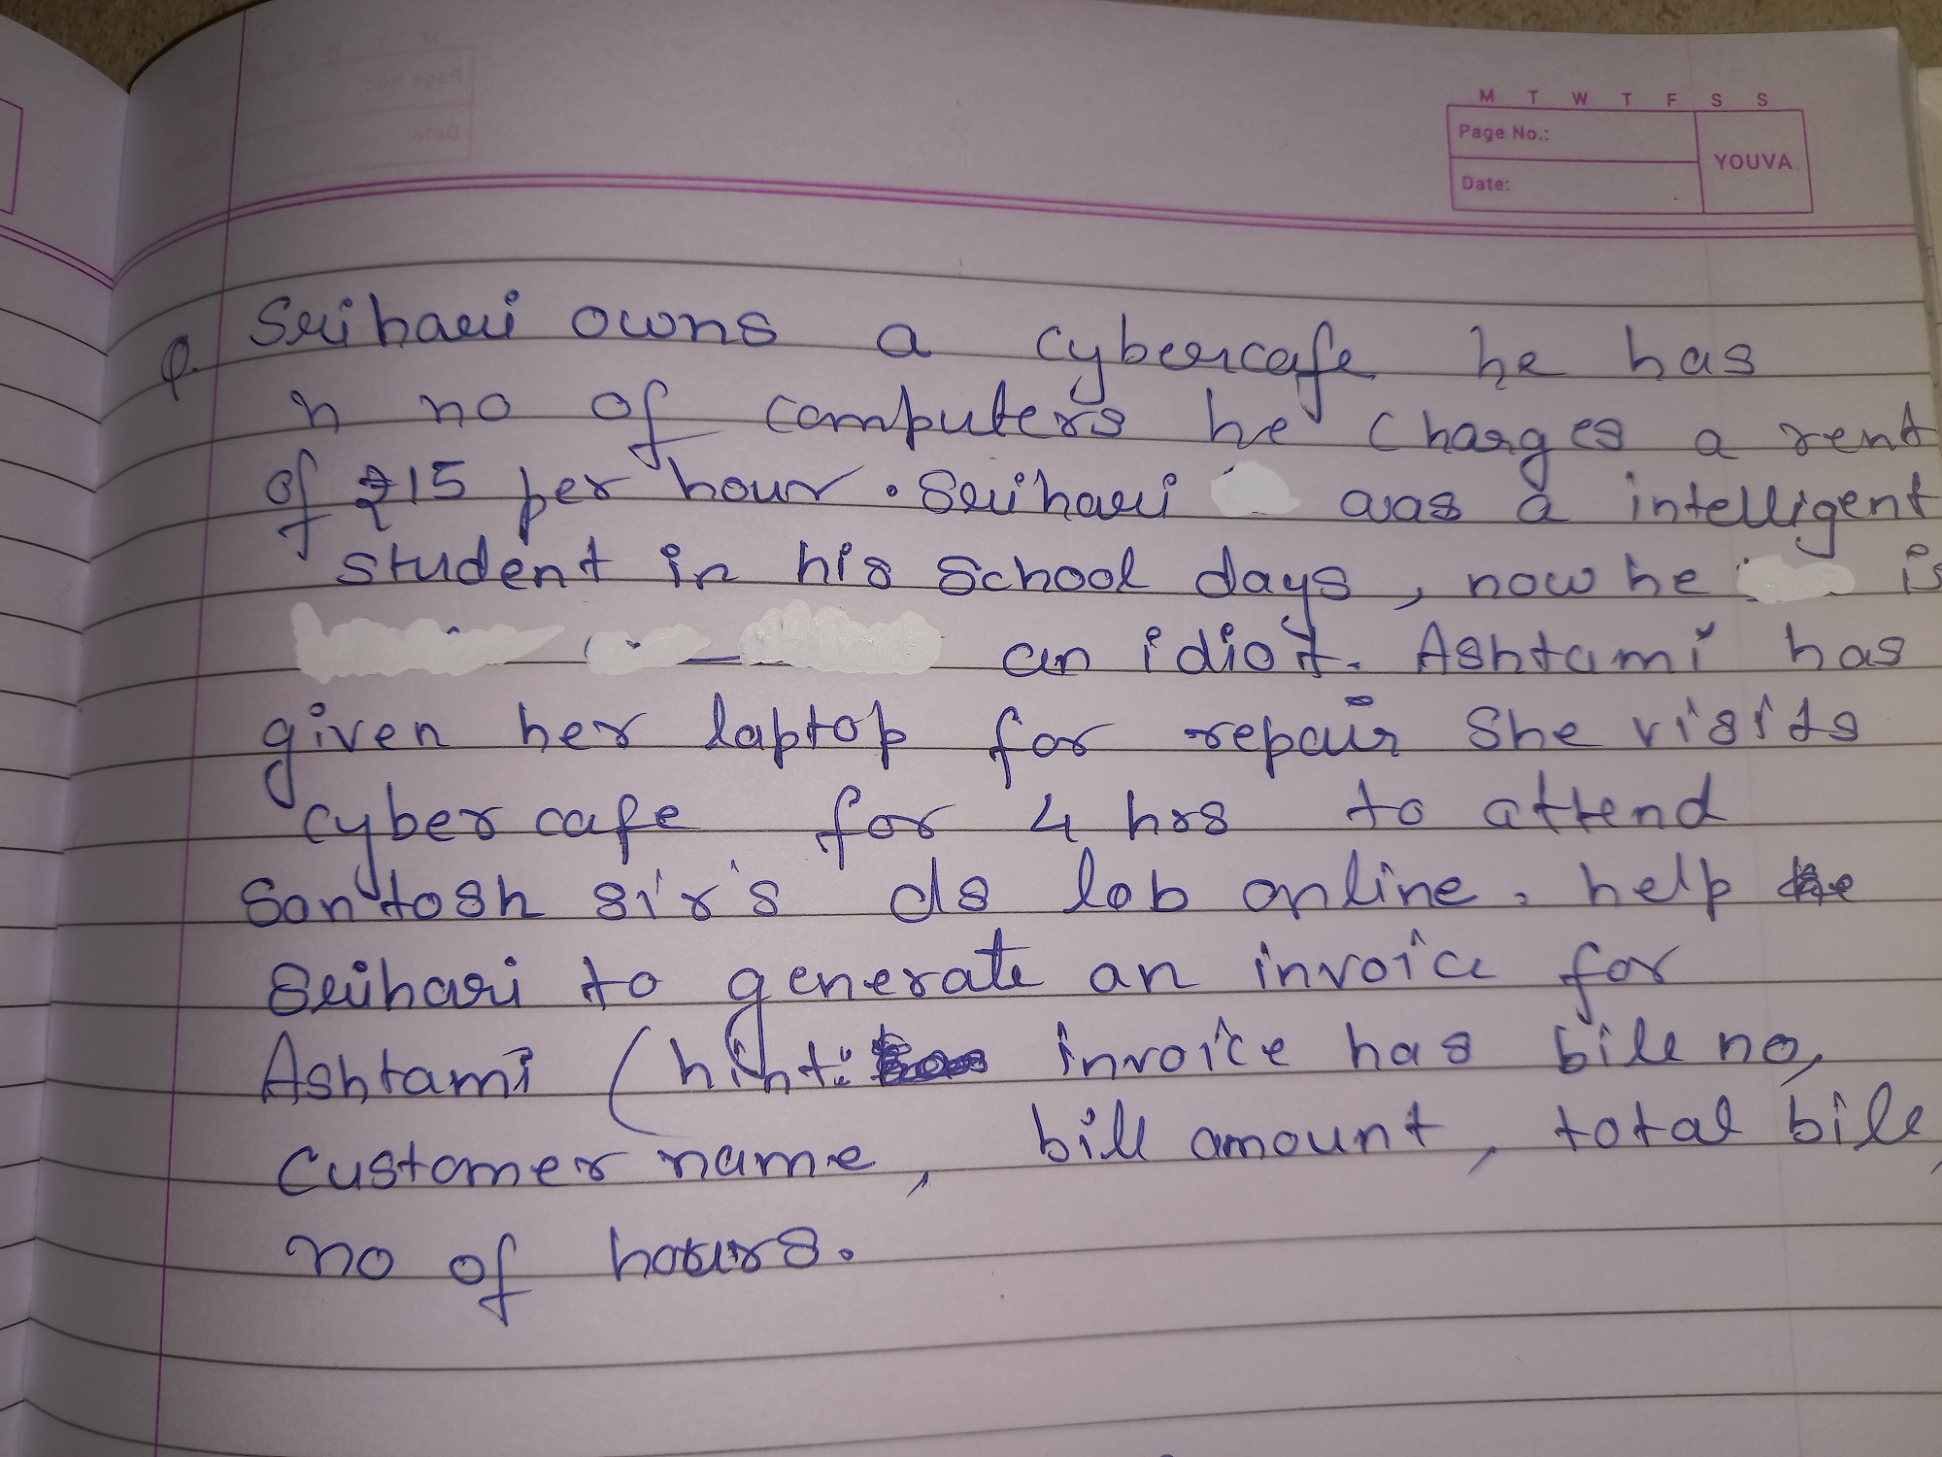 M T W T F S S
Page No.:
Date:
YOUVA
Q. Srihari owns a cybercafe, he has
n no of computers he charges a rent
of ₹15 per hour. Srihari was a intelligent
student in his school days, now he is
an idiot. Ashtami has
given her laptop for repair she visits
cyber cafe for 4 hrs to attend
Santosh sir's ds lab online. help
Srihari to generate an invoice for
Ashtami (hint: invoice has bile no,
Customer name, bill amount, total bile,
no of hours.